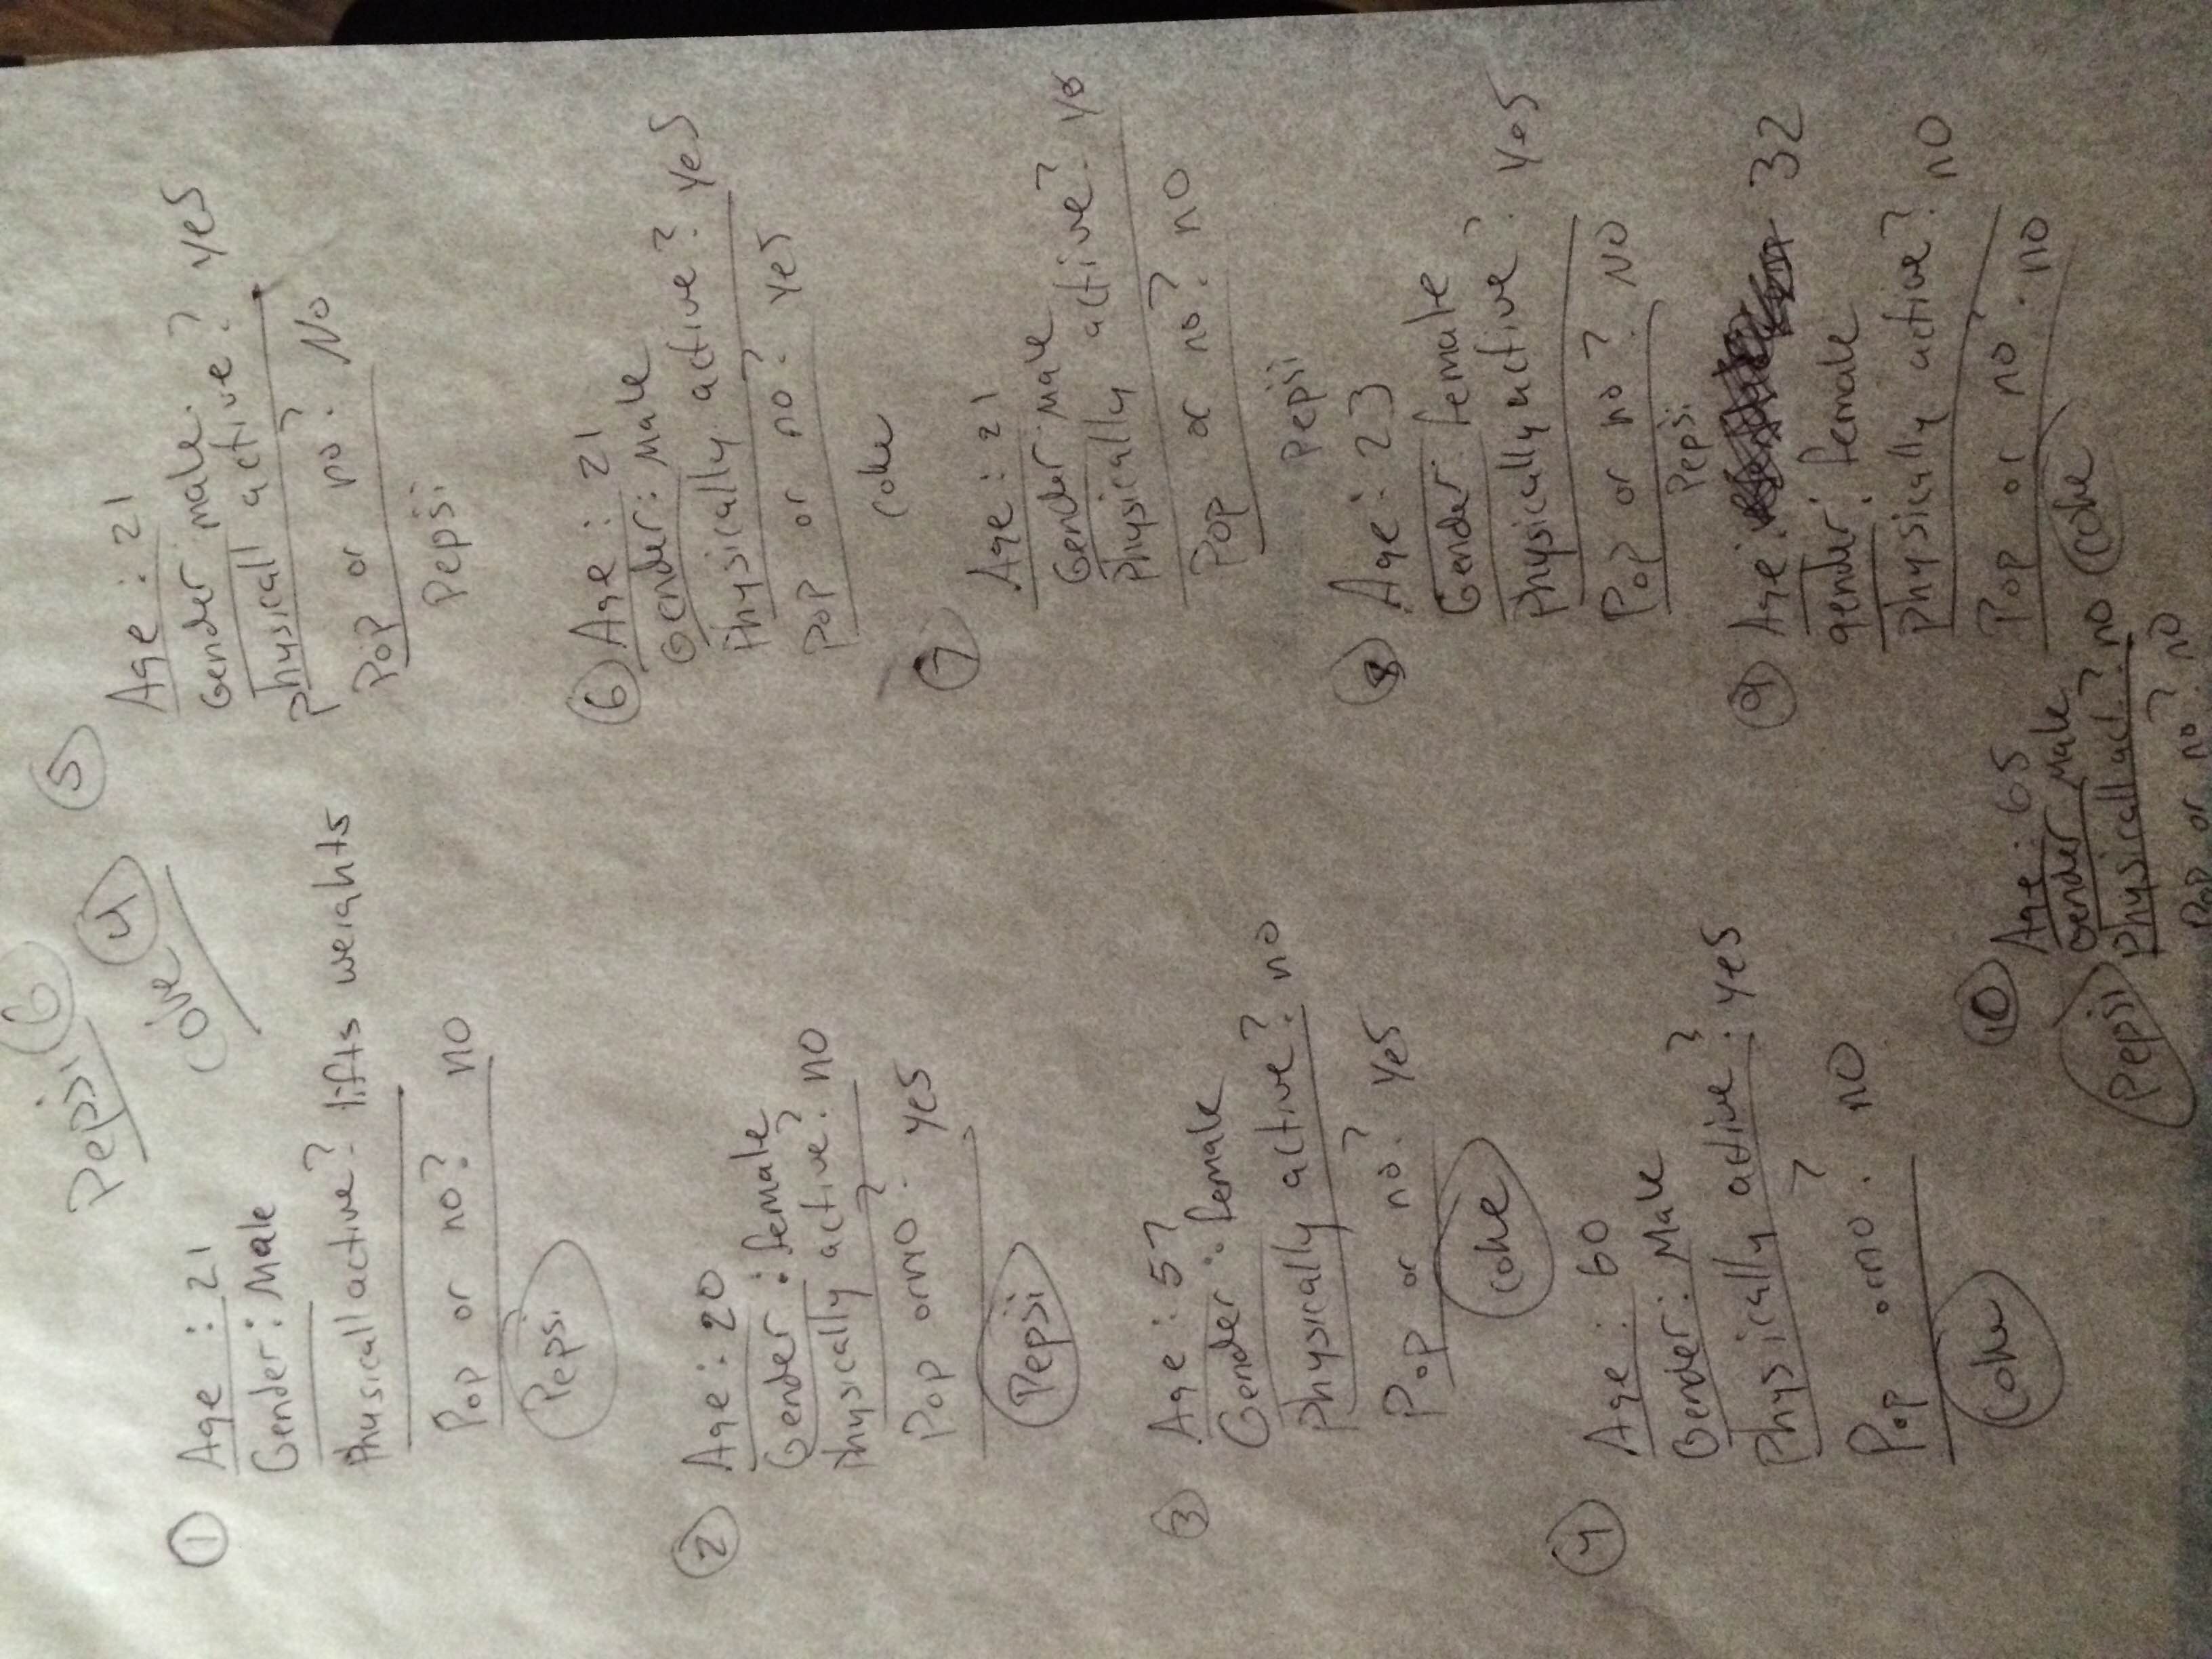 Pepsi 6
Coke 4
1 Age : 21
Gender: Male
Physicall active? lifts weights
Pop or no? no
Pepsi
2 Age: 20
Gender: female
Physically active? no
Pop or no? yes
Pepsi
3 Age: 57
Gender: female
Physically active? no
Pop or no? yes
coke
4 Age: 60
Gender: Male
Physically active? yes
Pop or no? no
Coke
5
Age: 21
Gender male.
Physicall active? yes
Pop or no? No
Pepsi
6 Age: 21
Gender: Male
Physically active? yes
Pop or no? yes
coke
7
Age: 21
Gender Male
Physically active?
Pop or no? no
Pepsi
8 Age: 23
Gender: female
Physically active? yes
Pop or no? No
Pepsi
9 Age: 32
gender: female
Physically active? no
Pop or no? no
coke
10 Age: 65
Gender Male
Physicall act.? no
Pop or no? no
Pepsi